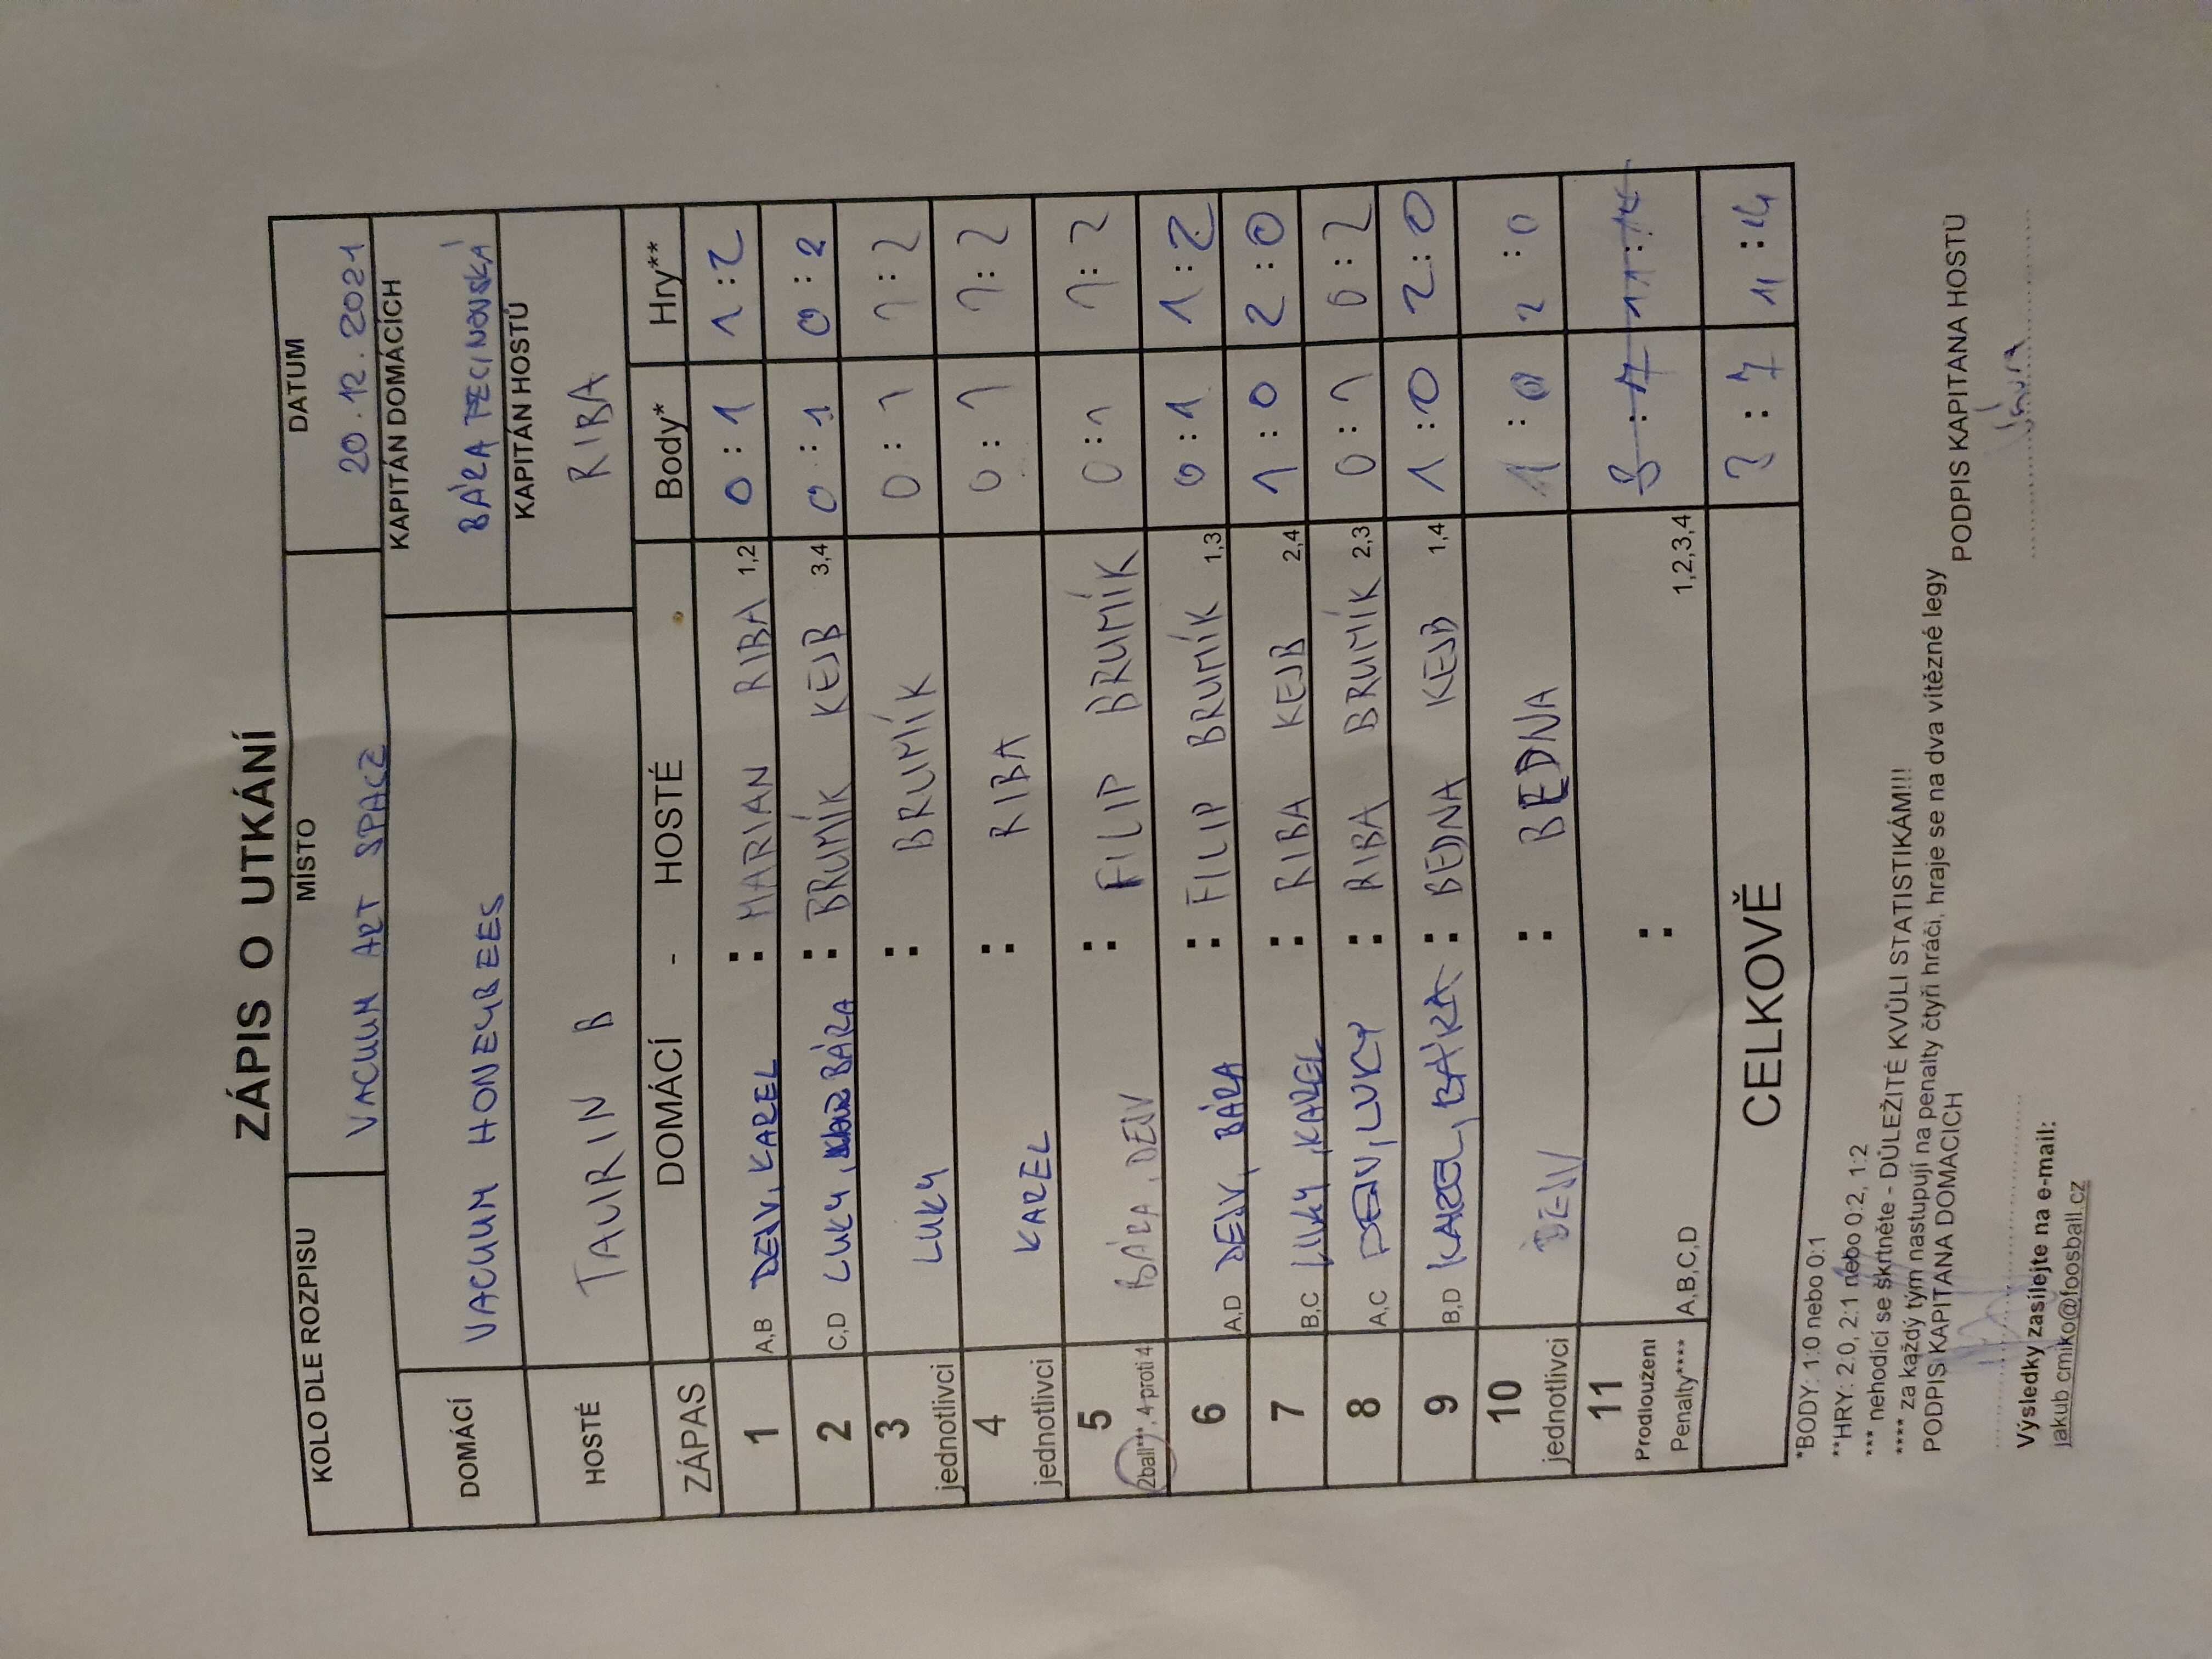 ZÁPIS O UTKÁNÍ
KOLO DLE ROZPISU MÍSTO DATUM
VACUUM ART SPACE 20.12.2021
DOMÁCÍ VACUUM HONEYBEES KAPITÁN DOMÁCÍCH
BÁRA PECINOVSKÁ
HOSTÉ TAURIN B KAPITÁN HOSTŮ
RIBA
ZÁPAS DOMÁCÍ - HOSTÉ Body* Hry**
1 A,B DENV, KAREL : MARIAN RIBA 1,2 0 : 1 1 : 2
2 C,D LUKY, BÁRA : BRUMÍK KEJB 3,4 0 : 1 0 : 2
3 jednotlivci LUKY : BRUMÍK 0 : 1 1 : 2
4 jednotlivci KAREL : RIBA 0 : 1 1 : 2
5 2ball***, 4 proti 4 BÁRA, DENV : FILIP BRUMÍK 0 : 1 1 : 2
6 A,D DENV, BÁRA : FILIP BRUMÍK 1,3 0 : 1 1 : 2
7 B,C LUKY, KAREL : RIBA KEJB 2,4 1 : 0 2 : 0
8 A,C DENV, LUKY : RIBA BRUMÍK 2,3 0 : 1 0 : 2
9 B,D KAREL, BÁRA : BEDNA KEJB 1,4 1 : 0 2 : 0
10 jednotlivci DENV : BEDNA 1 : 0 2 : 0
11 Prodloužení Penalty**** A,B,C,D : 1,2,3,4 3 : 7 11 : 14
CELKOVĚ 3 : 7 11 : 14
*BODY: 1:0 nebo 0:1
**HRY: 2:0, 2:1 nebo 0:2, 1:2
*** nehodící se škrtněte - DŮLEŽITÉ KVŮLI STATISTIKÁM!!!
**** za každý tým nastupují na penalty čtyři hráči, hraje se na dva vítězné legy
PODPIS KAPITANA DOMACICH PODPIS KAPITANA HOSTŮ
Výsledky zasílejte na e-mail:
jakub.crniko@foosball.cz